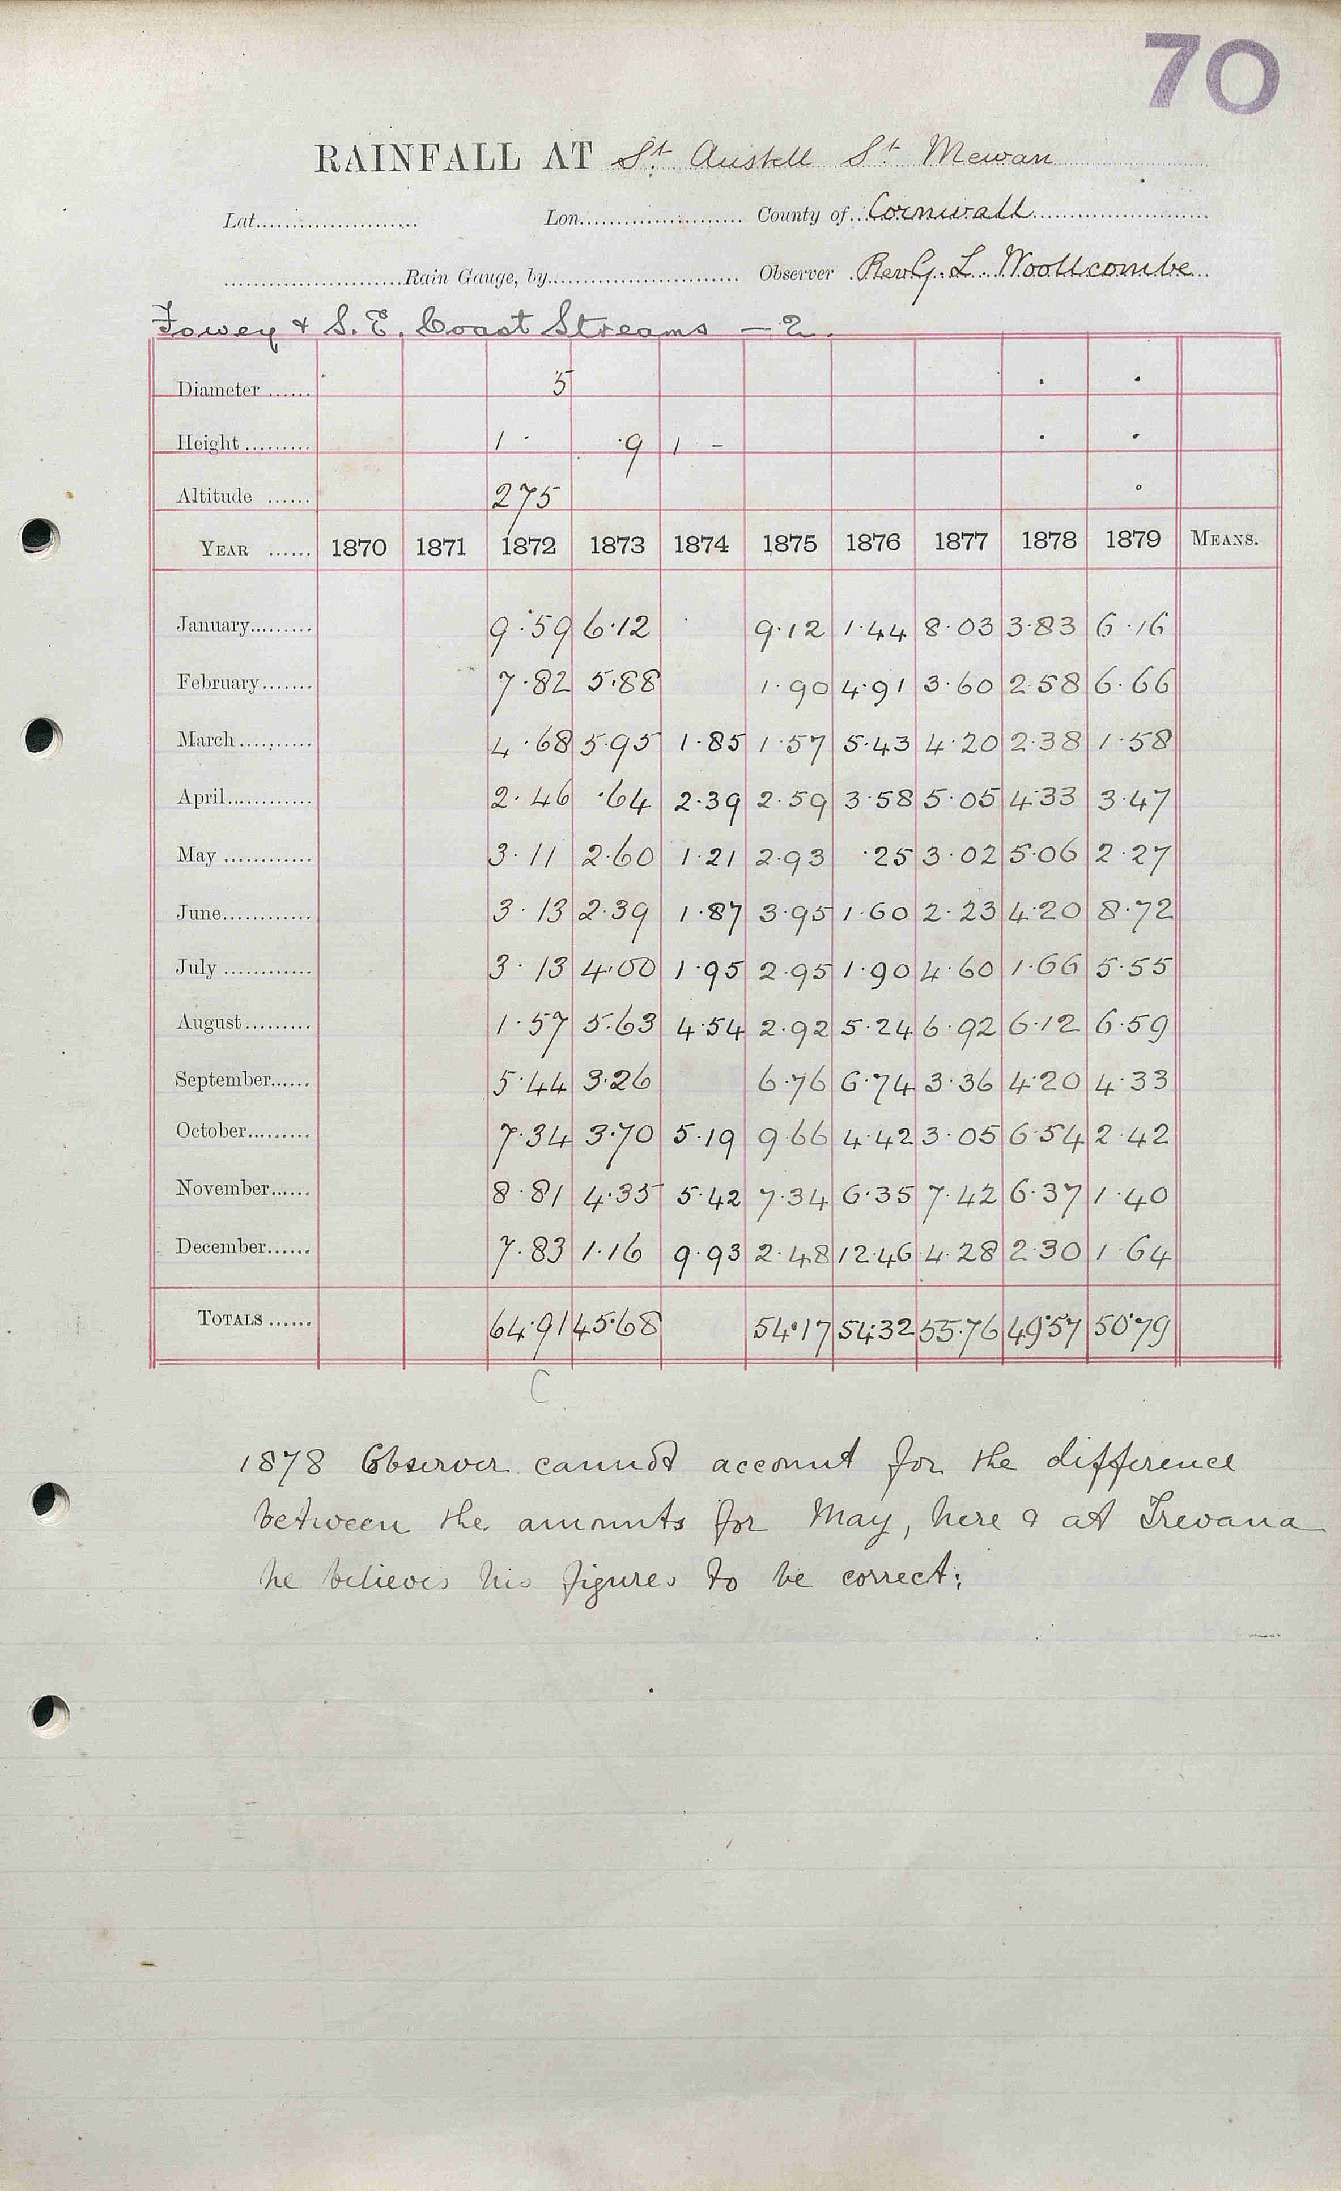 70
RAINFALL AT St. Austell St. Mewan
Lat. Lon. County of Cornwall
Rain Gauge, by Observer Rev G. L. Woollcombe
Fowey & S. E. Coast Streams — 2.
Diameter 5 . .
Height 1 · ·9 1 - . .
Altitude 275
YEAR 1870 1871 1872 1873 1874 1875 1876 1877 1878 1879 MEANS.
January 9·59 6·12 9·12 1·44 8·03 3·83 6·16
February 7·82 5·88 1·90 4·91 3·60 2·58 6·66
March 4·68 5·95 1·85 1·57 5·43 4·20 2·38 1·58
April 2·46 ·64 2·39 2·59 3·58 5·05 4·33 3·47
May 3·11 2·60 1·21 2·93 ·25 3·02 5·06 2·27
June 3·13 2·39 1·87 3·95 1·60 2·23 4·20 8·72
July 3·13 4·00 1·95 2·95 1·90 4·60 1·66 5·55
August 1·57 5·63 4·54 2·92 5·24 6·92 6·12 6·59
September 5·44 3·26 6·76 6·74 3·36 4·20 4·33
October 7·34 3·70 5·19 9·66 4·42 3·05 6·54 2·42
November 8·81 4·35 5·42 7·34 6·35 7·42 6·37 1·40
December 7·83 1·16 9·93 2·48 12·46 4·28 2·30 1·64
TOTALS 64·91 45·68 54·17 54·32 55·76 49·57 50·79
C
1878 Observer cannot account for the difference
between the amounts for May, here & at Trevana
he believes his figures to be correct;